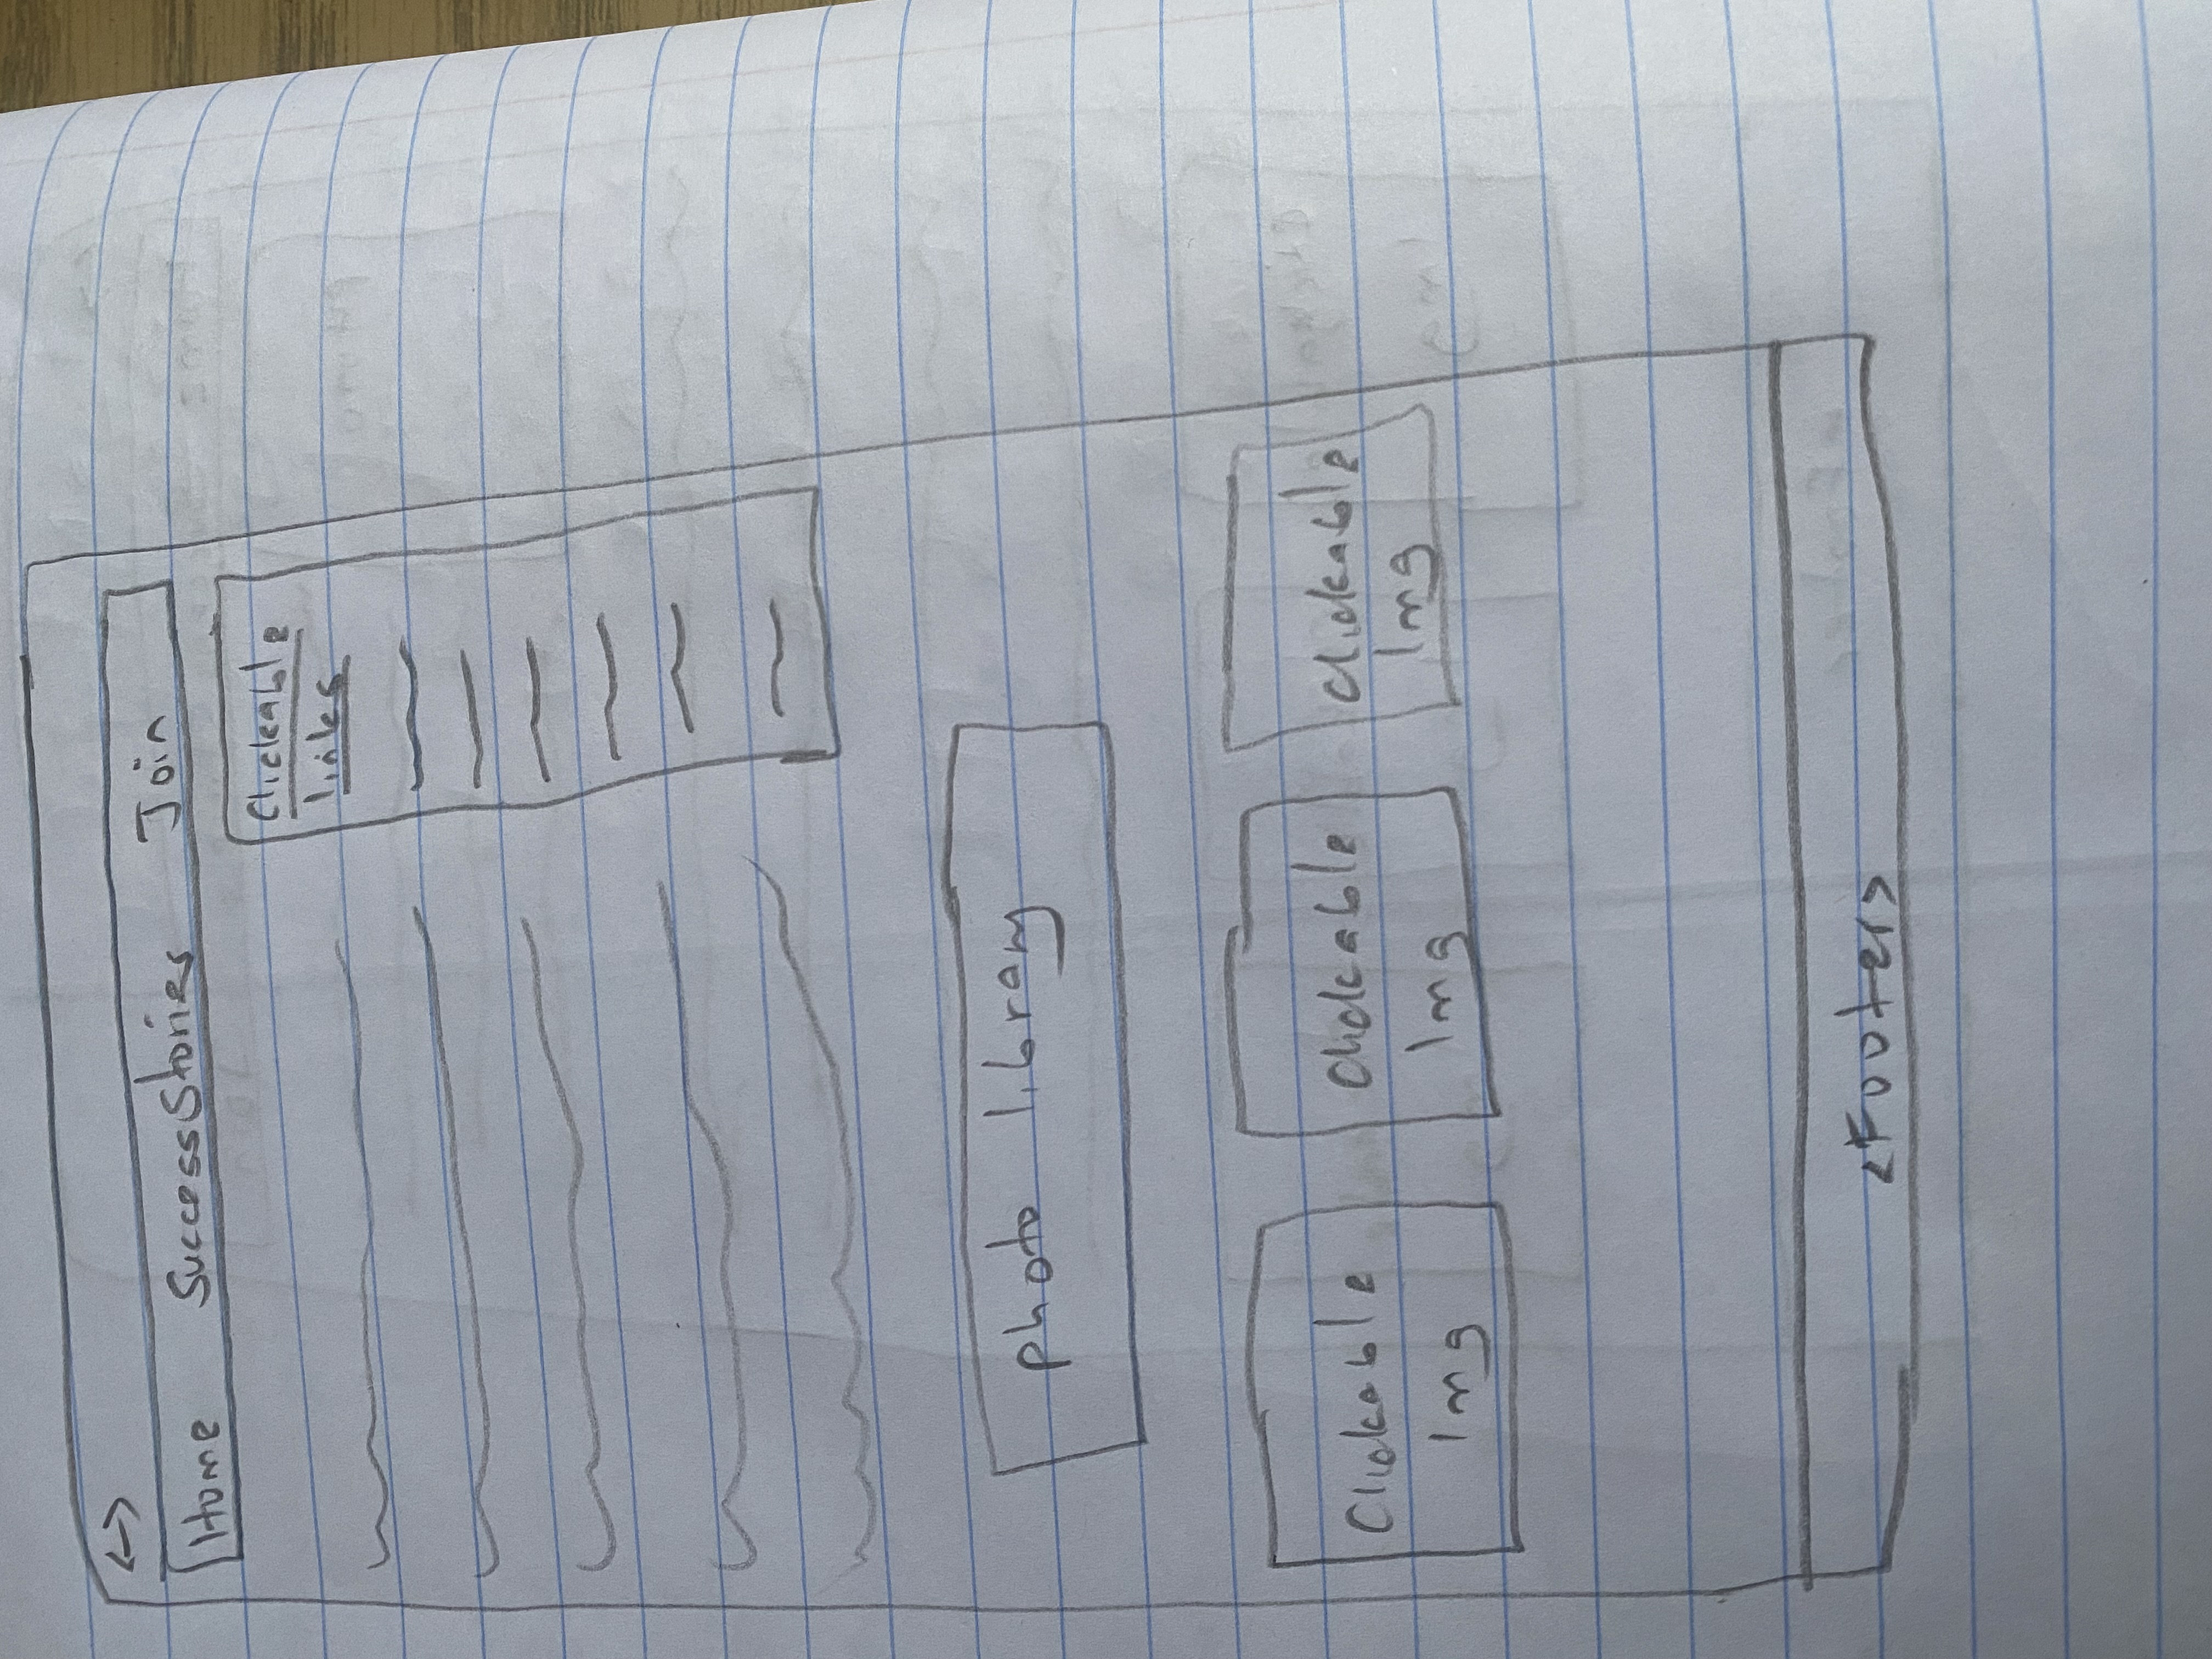 <->
Home SuccessStories Join
Clickable
links
photo library
Clickable
Img
Clickable
Img
Clickable
Img
<Footer>